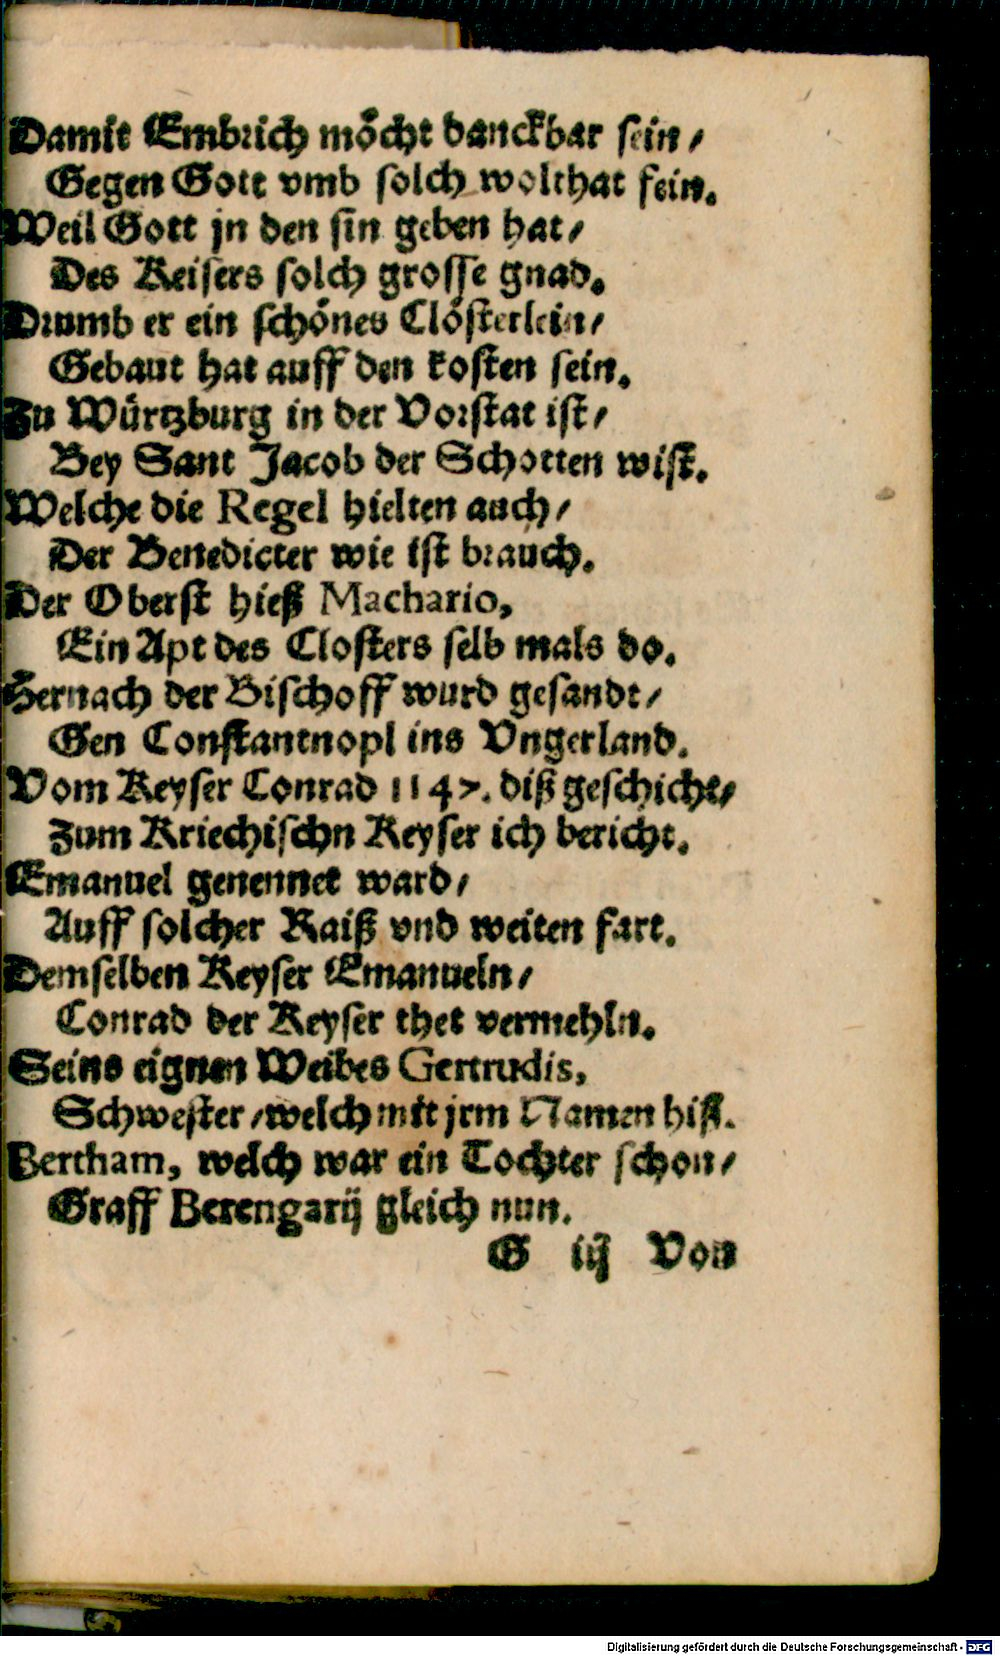 Damit Embrich möcht danckbar sein /
Gegen Gott vmb solch wolthat fein.
Weil Gott jn den sin geben hat /
Des Keisers solch grosse gnad.
Drumb er ein schönes Clösterlein /
Gebaut hat auff den kosten sein.
Zu Würtzburg in der Vorstat ist /
Bey Sant Jacob der Schotten wist.
Welche die Regel hielten auch /
Der Benedicter wie ist brauch.
Der Oberst hieß Machario,
Ein Apt des Closters selb mals do.
Hernach der Bischoff wurd gesandt /
Gen Constantnopl ins Vngerland.
Vom Keyser Conrad 1147. diß geschicht /
Zum Kriechischn Keyser ich bericht.
Emanuel genennet ward /
Auff solcher Raiß vnd weiten fart.
Demselben Keyser Emanueln /
Conrad der Keyser thet vermehln.
Seins eignen Weibes Gertrudis,
Schwester / welch mit jrm Namen hiß.
Bertham, welch war ein Tochter schon /
Graff Berengarij gleich nun.
G iij Von
Digitalisierung gefördert durch die Deutsche Forschungsgemeinschaft - DFG